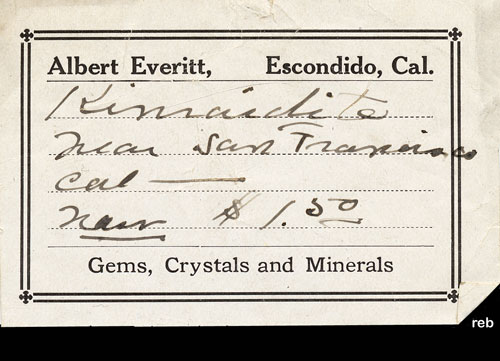 Albert Everitt, Escondido, Cal.
Kinradite
near San Francisco
Cal —
new $1.50
Gems, Crystals and Minerals
reb